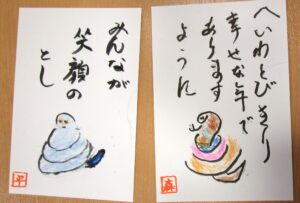 みんなが
笑顔の
とし
平
へいわとびきり
幸せな年で
あります
ように
森